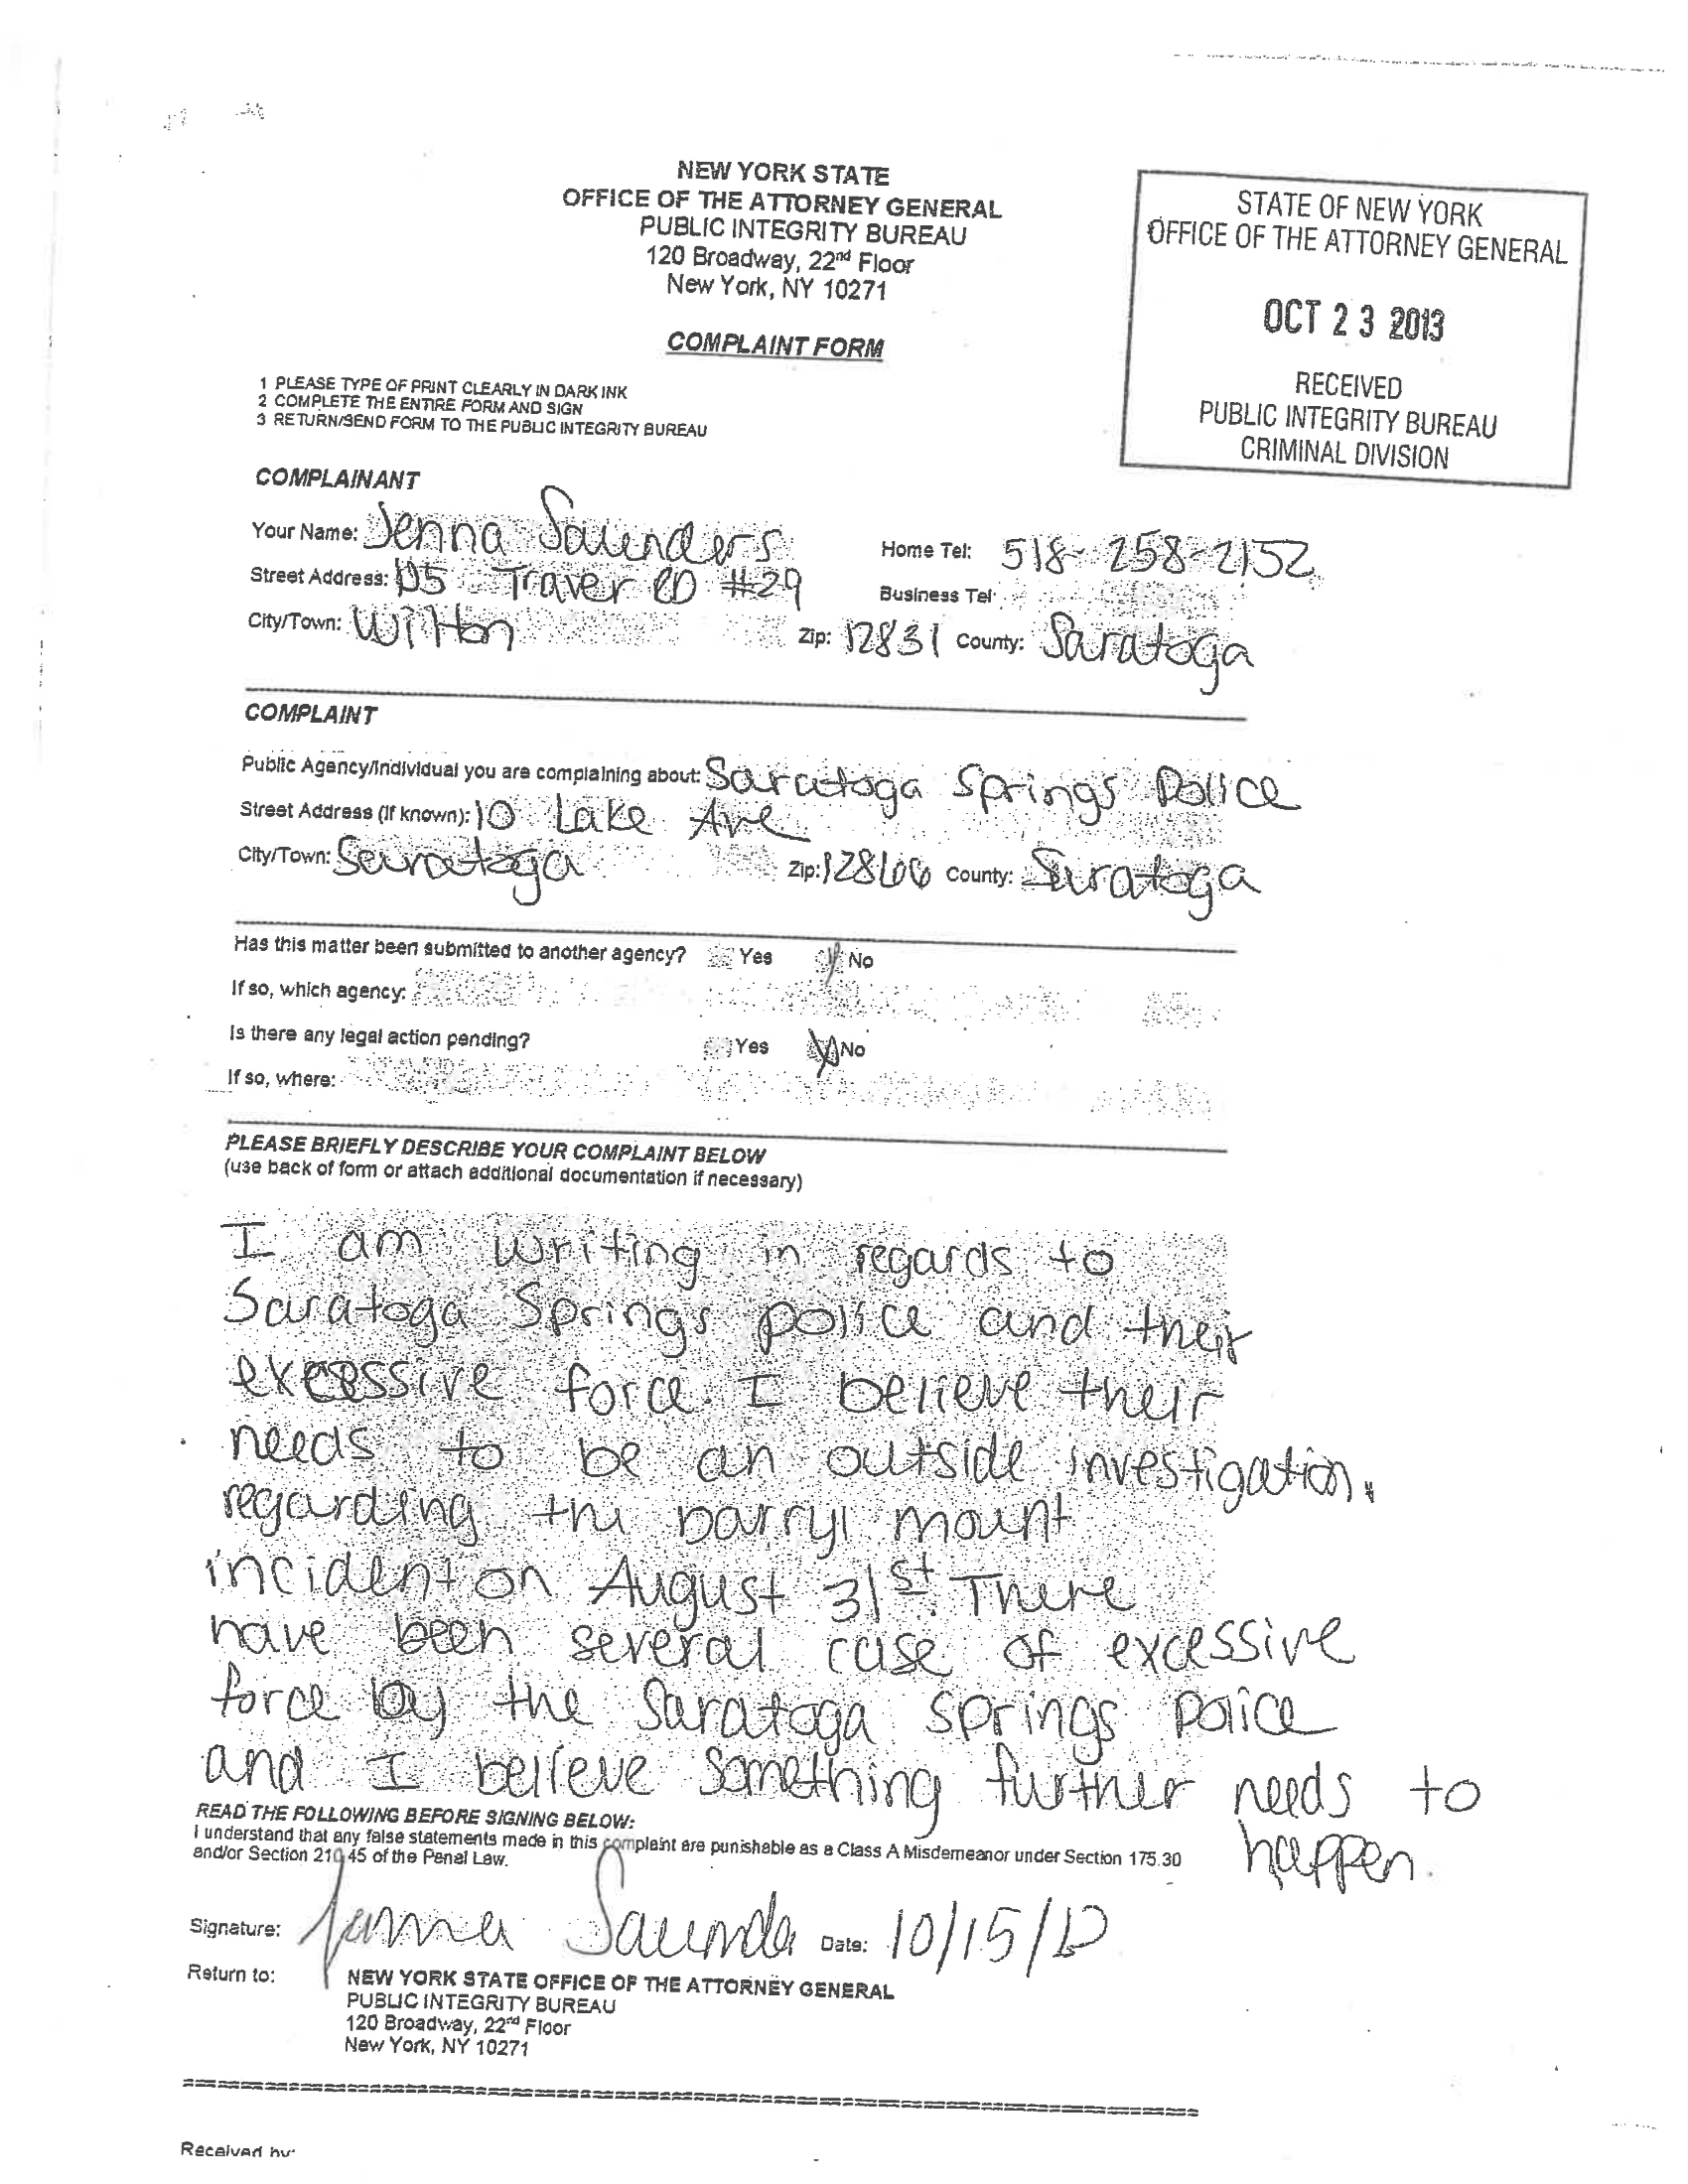 NEW YORK STATE
OFFICE OF THE ATTORNEY GENERAL
PUBLIC INTEGRITY BUREAU
120 Broadway, 22nd Floor
New York, NY 10271
COMPLAINT FORM
STATE OF NEW YORK
OFFICE OF THE ATTORNEY GENERAL
OCT 23 2013
RECEIVED
PUBLIC INTEGRITY BUREAU
CRIMINAL DIVISION
1 PLEASE TYPE OF PRINT CLEARLY IN DARK INK
2 COMPLETE THE ENTIRE FORM AND SIGN
3 RETURN/SEND FORM TO THE PUBLIC INTEGRITY BUREAU
COMPLAINANT
Your Name: Jenna Saunders Home Tel: 518-258-2152
Street Address: Traver RD #29 Business Tel:
City/Town: Wilton Zip: 12831 County: Saratoga
COMPLAINT
Public Agency/Individual you are complaining about: Saratoga Springs Police
Street Address (if known): 10 Lake Ave
City/Town: Saratoga Zip: 12866 County: Saratoga
Has this matter been submitted to another agency? Yes No
If so, which agency:
Is there any legal action pending? Yes No
If so, where:
PLEASE BRIEFLY DESCRIBE YOUR COMPLAINT BELOW
(use back of form or attach additional documentation if necessary)
I am writing in regards to
Saratoga Springs police and their
excessive force. I believe their
needs to be an outside investigation.
regarding the Darryl mount
incident on August 31st. There
have been several case of excessive
force by the Saratoga Springs Police
and I believe something further needs to
happen.
READ THE FOLLOWING BEFORE SIGNING BELOW:
I understand that any false statements made in this complaint are punishable as a Class A Misdemeanor under Section 175.30
and/or Section 210.45 of the Penal Law.
Signature: Jenna Saunders Date: 10/15/13
Return to: NEW YORK STATE OFFICE OF THE ATTORNEY GENERAL
PUBLIC INTEGRITY BUREAU
120 Broadway, 22nd Floor
New York, NY 10271
Received by: